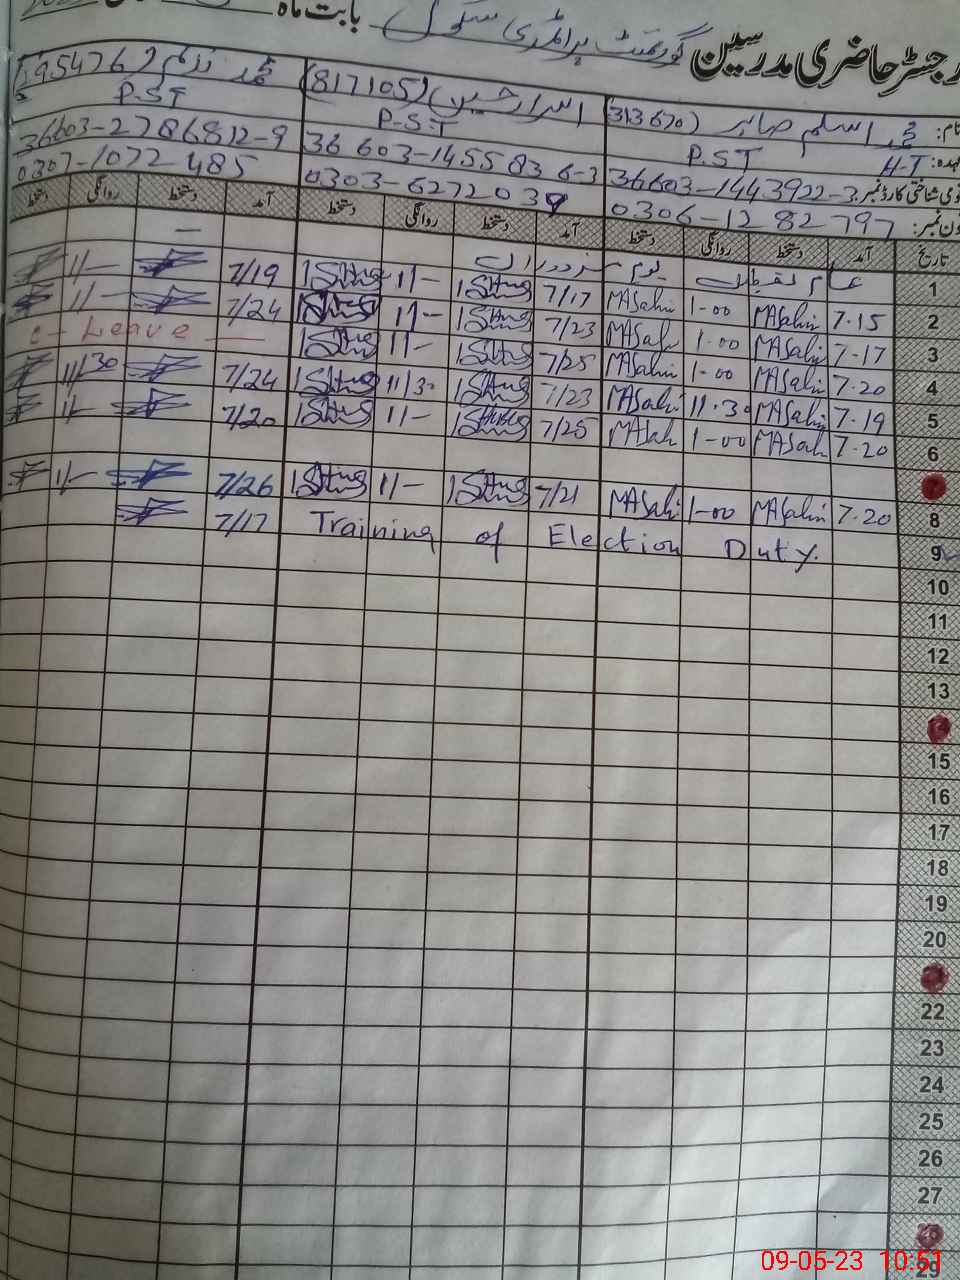 رجسٹر حاضری مدرسین گورنمنٹ پرائمری سکول بابت ماہ
نام: محمد اسلم صابر (313670) اسرار حسین (817105) محمد
عہدہ: H-T P.S.T P-S-T P.S.T
قومی شناختی کارڈ نمبر: 36603-1443922-3 36603-1455836-3 36603-2786812-9
فون نمبر: 0306-1282797 0303-6272039 0307-1072485
تاریخ آمد دستخط روانگی دستخط آمد دستخط روانگی دستخط آمد دستخط روانگی دستخط
1 عام تعطیل یوم مزدوراں —
2 7-15 MASabir 1-00 MASabir 7/17 11/- 7/19 11/-
3 7-17 MASabir 1-00 MASabir 7/23 11/- 7/24 11/-
4 7-20 MASabir 1-00 MASabir 7/25 11/- C-Leave
5 7-19 MASabir 11-30 MASabir 7/23 11/30 7/24 11/30
6 7-20 MASabir 1-00 MASabir 7/25 11/- 7/20 11/-
8 7-20 MASabir 1-00 MASabir 7/21 11/- 7/26 11/-
9 7/17 Training of Election Duty.
10
11
12
13
15
16
17
18
19
20
22
23
24
25
26
27
29
09-05-23 10:51